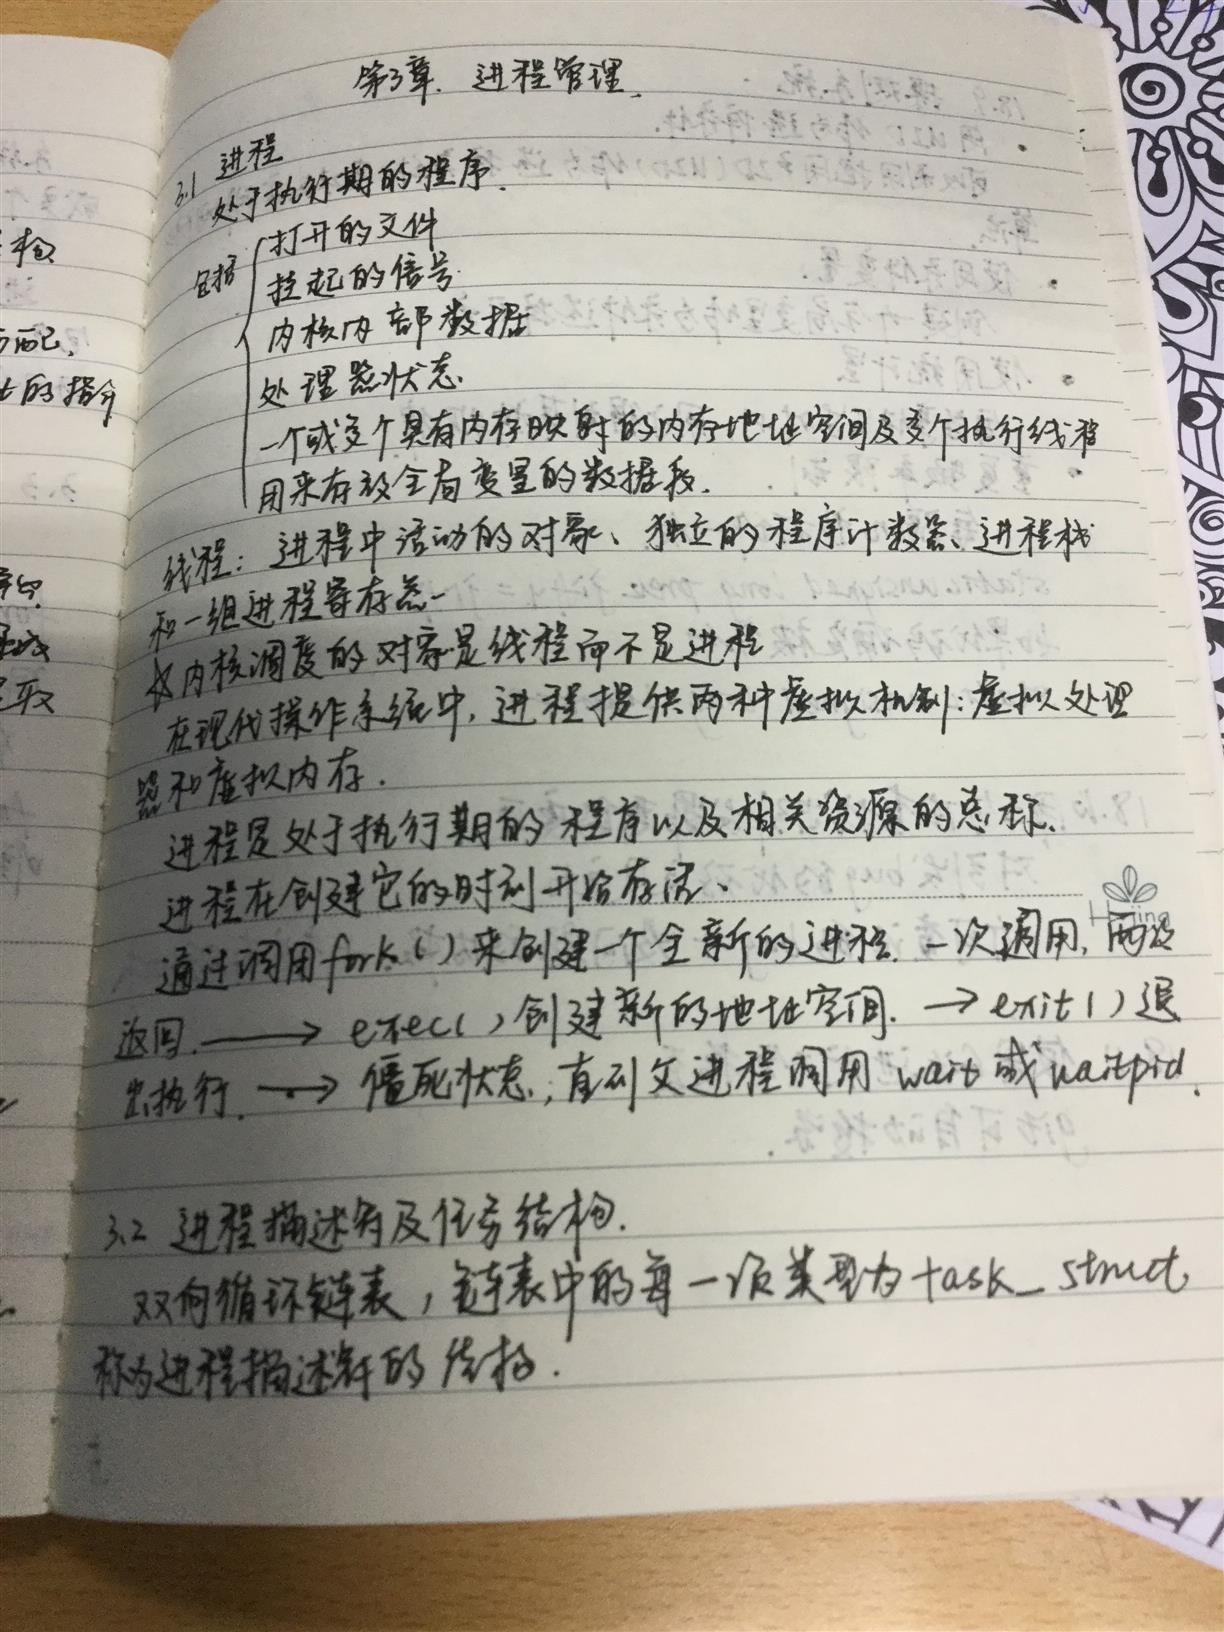 第3章. 进程管理.
3.1 进程
处于执行期的程序.
包括
打开的文件
挂起的信号
内核内部数据
处理器状态.
一个或多个具有内存映射的内存地址空间及多个执行线程
用来存放全局变量的数据段.
线程: 进程中活动的对象、独立的程序计数器、进程栈
和一组进程寄存器
☆内核调度的对象是线程而不是进程
在现代操作系统中, 进程提供两种虚拟机制: 虚拟处理
器和虚拟内存.
进程是处于执行期的程序以及相关资源的总称.
进程在创建它的时刻开始存活、
通过调用fork()来创建一个全新的进程. 一次调用, 两次
返回. → exec()创建新的地址空间. → exit()退
出执行. → 僵死状态, 直到父进程调用 wait 或 waitpid.
3.2 进程描述符及任务结构.
双向循环链表, 链表中的每一项类型为 task_struct
称为进程描述符的结构.
构
配,
的指令
取